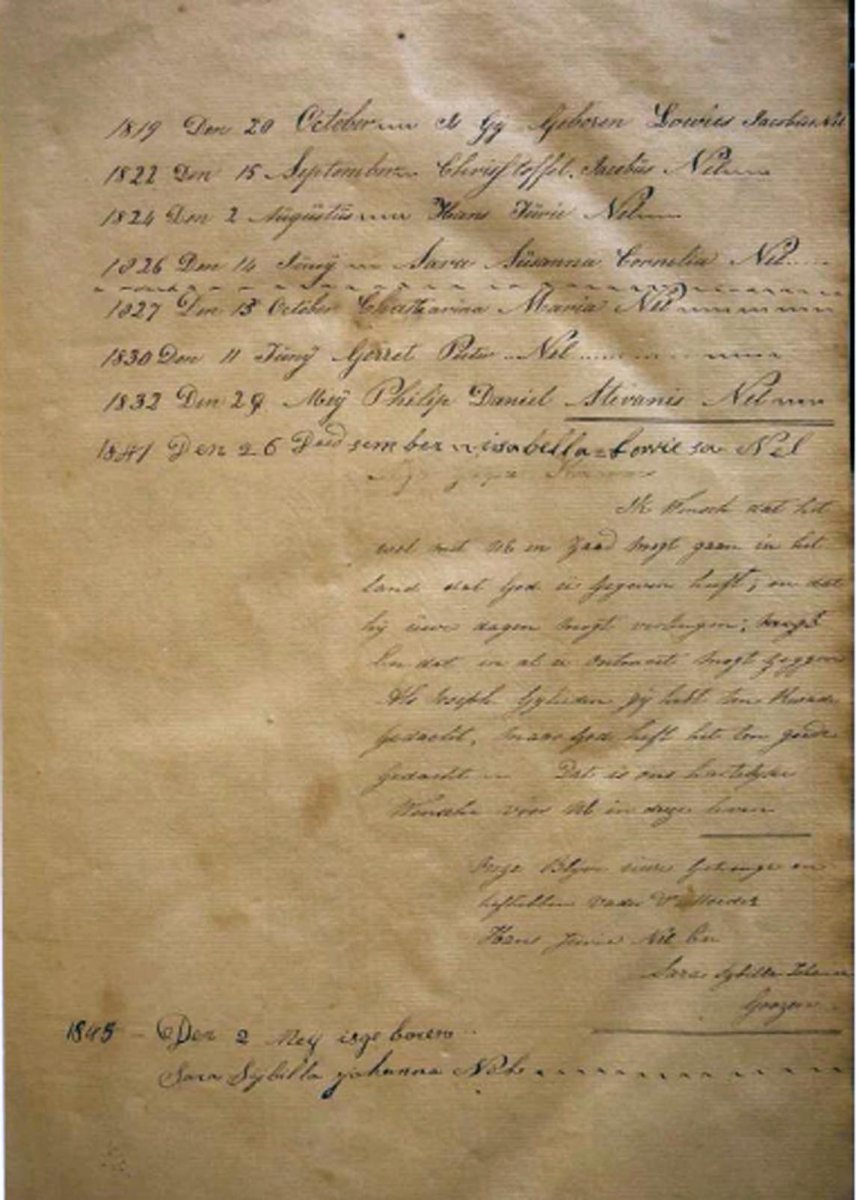 1819 Den 20 October is Gÿ Geboren Lowies Jacobus Nel
1822 Den 15 September Christoffel Jacobus Nel
1824 Den 2 Augüstüs Hans Jürie Nel
1826 Den 14 Junÿ Sara Süsanna Cornelia Nel
1827 Den 13 October Chatharina Maria Nel
1830 Den 11 Junÿ Gerret Pieter Nel
1832 Den 29 Meÿ Philip Daniel Stevanis Nel
1841 Den 26 Deedsember isabella Lowiesa Nel
Ik Wensch dat het
wel met Ue en Zaad mogt gaan in het
land dat God u gegeven heeft; en dat
hij üwe dagen mogt verlengen;
En dat in al u ontmoet mogt zeggen
Als Joseph Gylieden zÿ hebt ten kwade
gedacht, maar God heft het ten goede
gedacht Dat is ons hartelyke
Wensche voor Ue in deze leven
Blyve üwe getrouwe en
liefhebben vader & Moeder
Hans Jurie Nel En
Sara Sybilla Johanna
1845 - Den 2 Mey isge boren
Sara Sybilla johanna Nel